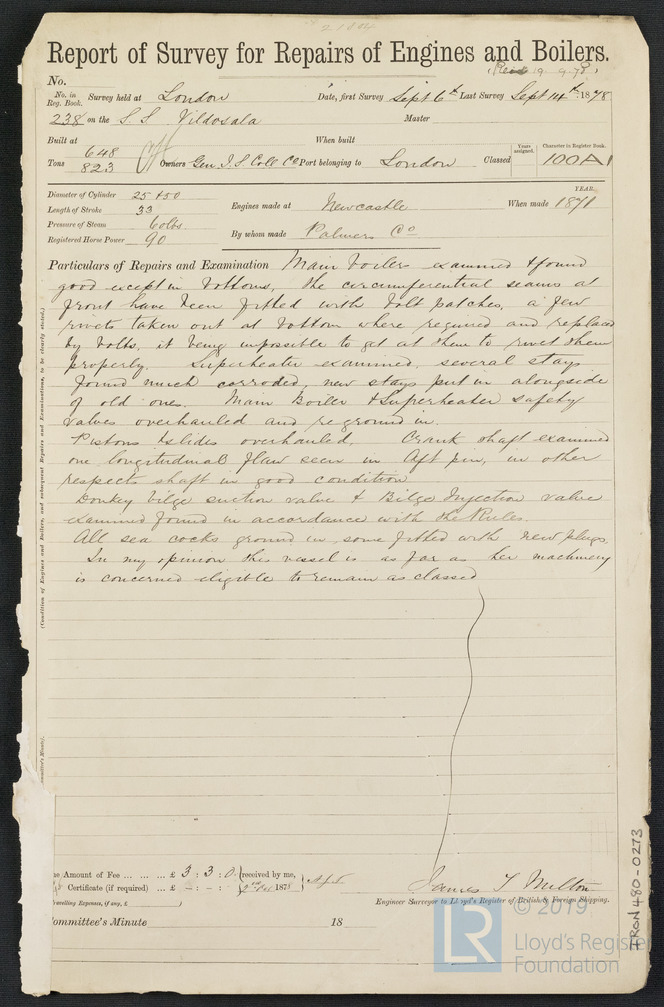 21804
Report of Survey for Repairs of Engines and Boilers.
(Rec 19. 9. 78)
No.
No. in Reg. Book. Survey held at London Date, first Survey Sept 6th Last Survey Sept 14th 1878
238 on the S.S. Vildosala Master
Built at When built
Tons 648 823 Owners Gen I S Coll Co Port belonging to London Classed Years assigned. Character in Register Book. 100A1
Diameter of Cylinder 25 + 50
Length of Stroke 33
Pressure of Steam 60 lbs
Registered Horse Power 90
Engines made at Newcastle When made YEAR. 1871
By whom made Palmers Co
Particulars of Repairs and Examination Main boilers examined & found
good except in bottoms, the circumferential seams at
front have been fitted with bolt patches, a few
rivets taken out at bottom where required and replaced
by bolts, it being impossible to get at them to rivet them
properly. Superheater examined, several stays
found much corroded, new stays put in alongside
of old ones. Main Boiler & Superheater safety
valves overhauled and reground in.
Pistons & slides overhauled, Crank shaft examined
one longitudinal flaw seen in Aft pin, in other
respects shaft in good condition
Donkey bilge suction valve & Bilge Injection valve
examined found in accordance with the Rules.
All sea cocks ground in, some fitted with new plugs.
In my opinion this vessel is as far as her machinery
is concerned eligible to remain as classed
(Condition of Engines and Boilers, and subsequent Repairs and Examinations, to be clearly stated.)
Amount of Fee ... ... ... £ 3 : 3 : 0 received by me,
Certificate (if required) ... £ - : - : 1878
Travelling Expenses, if any, £
James T Milton
Engineer Surveyor to Lloyd's Register of British & Foreign Shipping.
Committee's Minute 18
IRON480-0273
LR
© 2019
Lloyd's Register
Foundation